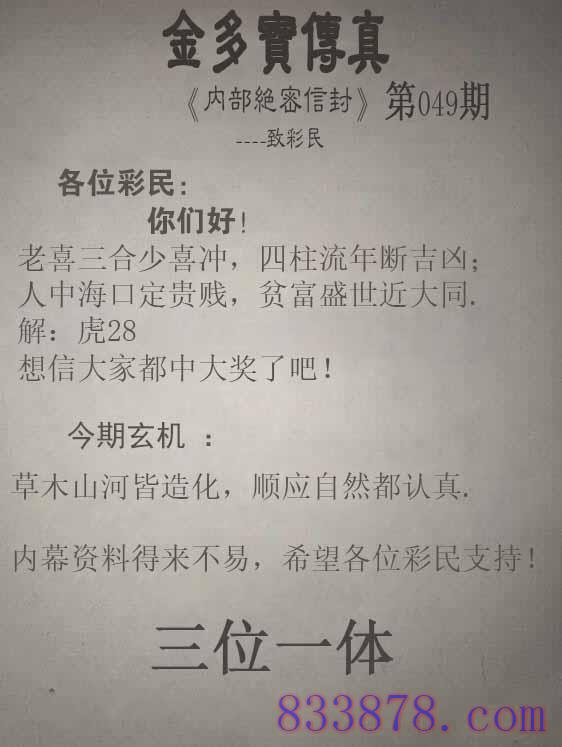 金多寳傳真
《内部絕密信封》第049期
----致彩民
各位彩民:
你们好!
老喜三合少喜冲，四柱流年断吉凶;
人中海口定贵贱，贫富盛世近大同.
解：虎28
想信大家都中大奖了吧!
今期玄机 :
草木山河皆造化，顺应自然都认真.
内幕资料得来不易，希望各位彩民支持!
三位一体
833878.com